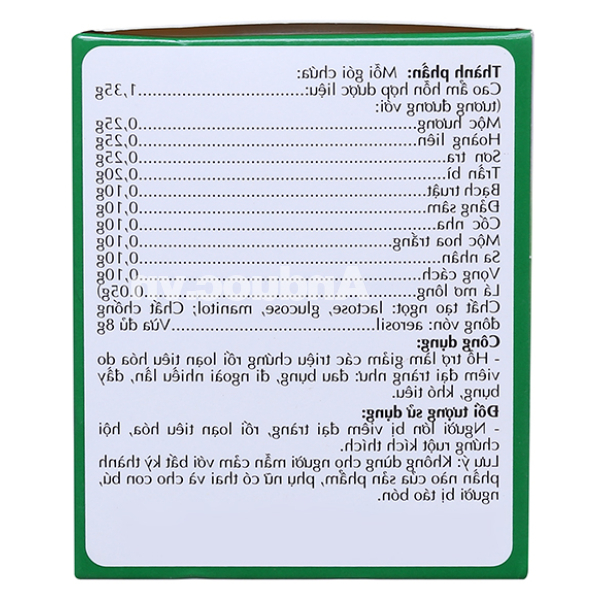 Thành phần: Mỗi gói chứa:
Cao ẩm hỗn hợp dược liệu:................1,35g
(tương đương với:
Mộc hương................0,25g
Hoàng liên................0,25g
Sơn tra................0,25g
Trần bì................0,20g
Bạch truật................0,10g
Đảng sâm................0,10g
Cốc nha................0,10g
Mộc hoa trắng................0,10g
Sa nhân................0,10g
Vọng cách................0,10g
Lá mơ lông................0,05g)
Chất tạo ngọt: lactose, glucose, manitol; Chất chống
đông vón: aerosil................Vừa đủ 8g
Công dụng:
- Hỗ trợ làm giảm các triệu chứng rối loạn tiêu hóa do
viêm đại tràng như: đau bụng, đi ngoài nhiều lần, đầy
bụng, khó tiêu.
Đối tượng sử dụng:
- Người lớn bị viêm đại tràng, rối loạn tiêu hóa, hội
chứng ruột kích thích.
Lưu ý: Không dùng cho người mẫn cảm với bất kỳ thành
phần nào của sản phẩm, phụ nữ có thai và cho con bú,
người bị táo bón.
Anduoc.vn